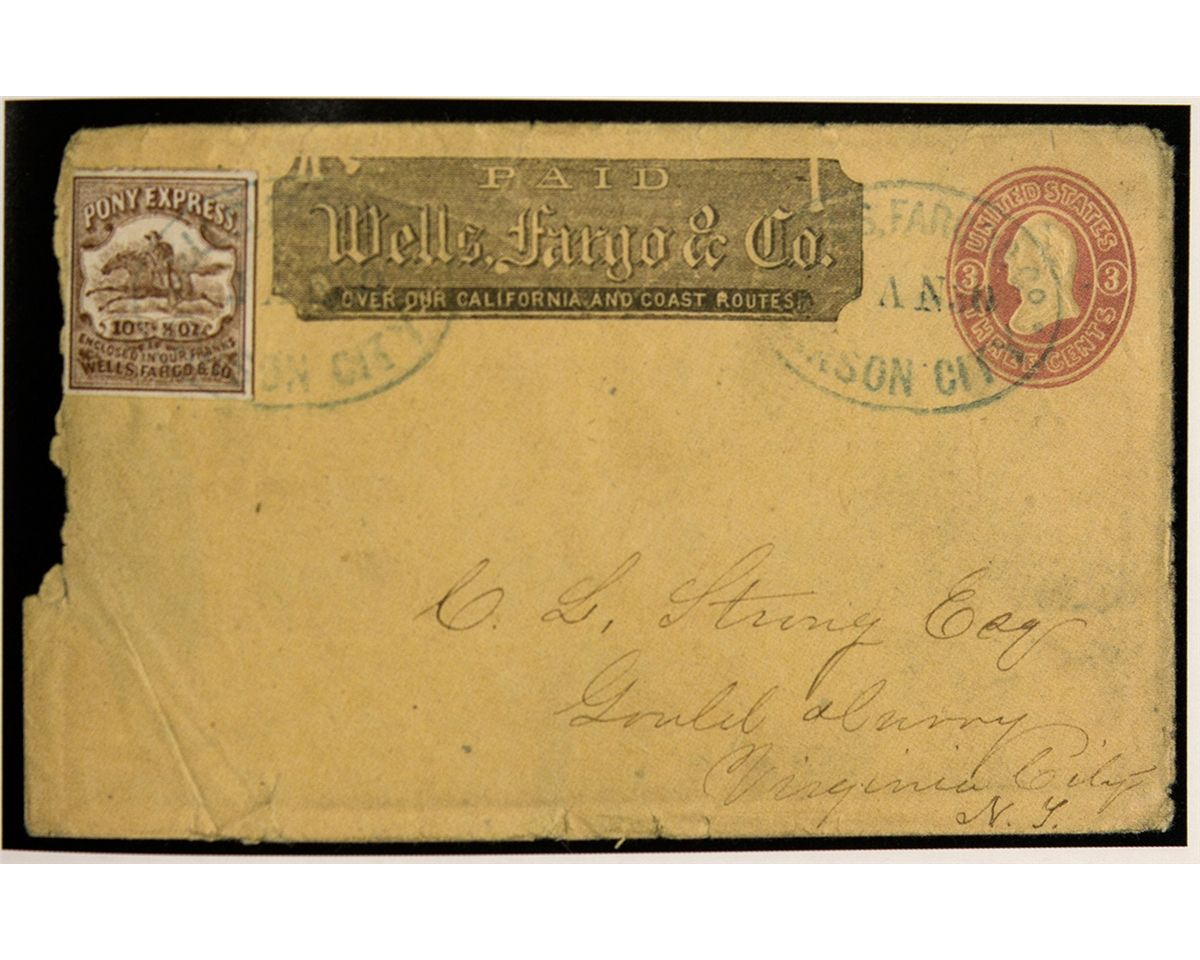 PONY EXPRESS.
10 Cts ½ OZ.
ENCLOSED IN OUR FRANKS
WELLS, FARGO & CO.
PAID
Wells, Fargo & Co.
OVER OUR CALIFORNIA AND COAST ROUTES.
SON CITY
S. FAR
AN 10
ARSON CITY
UNITED STATES
3 3
THREE CENTS
C. L. Strong Esq
Gould & Curry
Virginia City
N. T.